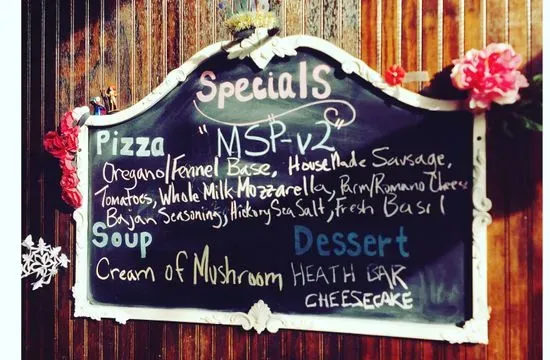 Specials
Pizza "MSP-v2"
Oregano/Fennel Base, HouseMade Sausage,
Tomatoes, Whole Milk Mozzarella, Parm/Romano Cheese
Bajan Seasoning, Hickory Sea Salt, Fresh Basil
Soup Dessert
Cream of Mushroom HEATH BAR
CHEESECAKE